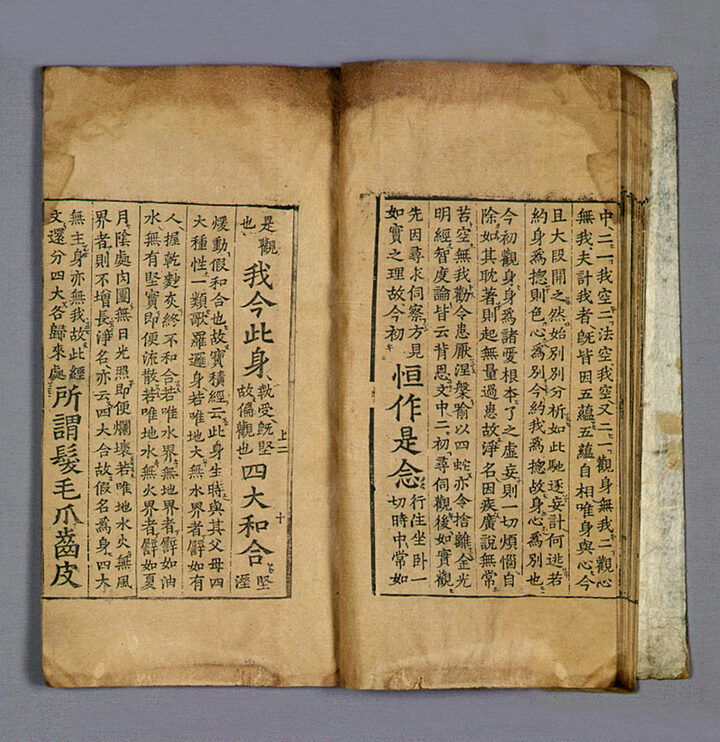 中二、一我空二法空我空又二、一觀身無我二觀心
無我夫計我者旣皆因五蘊五蘊自相唯身與心今
且大段開之然始別別分析如此馳逐妄計何逃若
約身為揔則色心為別今約我為揔故身心為別也
今初觀身身為諸愛根本了之虛妄則一切煩惱自
除如其耽著則起無量過患故淨名因疾廣說無常
苦空無我勸令患厭涅槃喻以四蛇亦令捨離金光
明經智度論皆云背恩文中二初尋伺觀後如實觀
先因尋求伺察方見
如實之理故今初
恒作是念
行住坐臥一
切時中常如
上二
十
是觀
也
我今此身
執受旣堅
故偏觀也
四大和合
堅
溼
煖動假和合也故寶積經云此身生時與其父母四
大種性一類歌羅邏身若唯地大無水界者譬如有
人握乾麨灰終不和合若唯水界無地界者譬如油
水無有堅實即便流散若唯地水無火界者譬如夏
月陰處肉團無日光照即便爛壞若唯地水火無風
界者則不增長淨名亦云四大合故假名為身四大
無主身亦無我故此經
文還分四大各歸來處
所謂髮毛爪齒皮